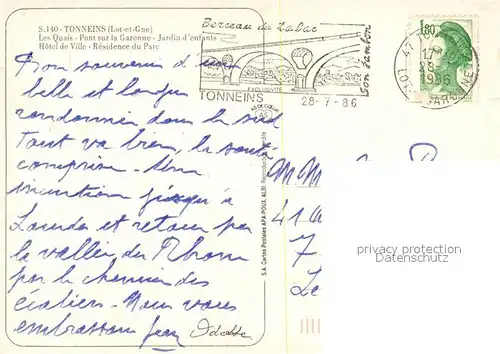 S.140 - TONNEINS (Lot-et-Gne)
Les Quais - Pont sur la Garonne - Jardin d'enfants
Hôtel de Ville - Résidence du Parc
Bon souvenir d'une
belle et longue
randonnée dans le sud
Tout va bien, la santé
comprise - Une
incursion jusqu'à
Lourdes et retour par
la vallée du Rhone
par le chemin des
écoliers - Nous vous
embrassons Jean Odette
Berceau du Tabac
Son Jambon
EXCLUSIVITÉ
TONNEINS
28-7-86
AS DE CŒUR
S.A. Cartes Postales APA-POUX, ALBI
1,80
47
17
28-
1986
GARONNE
M M
41
7
privacy protection
Datenschutz
Le